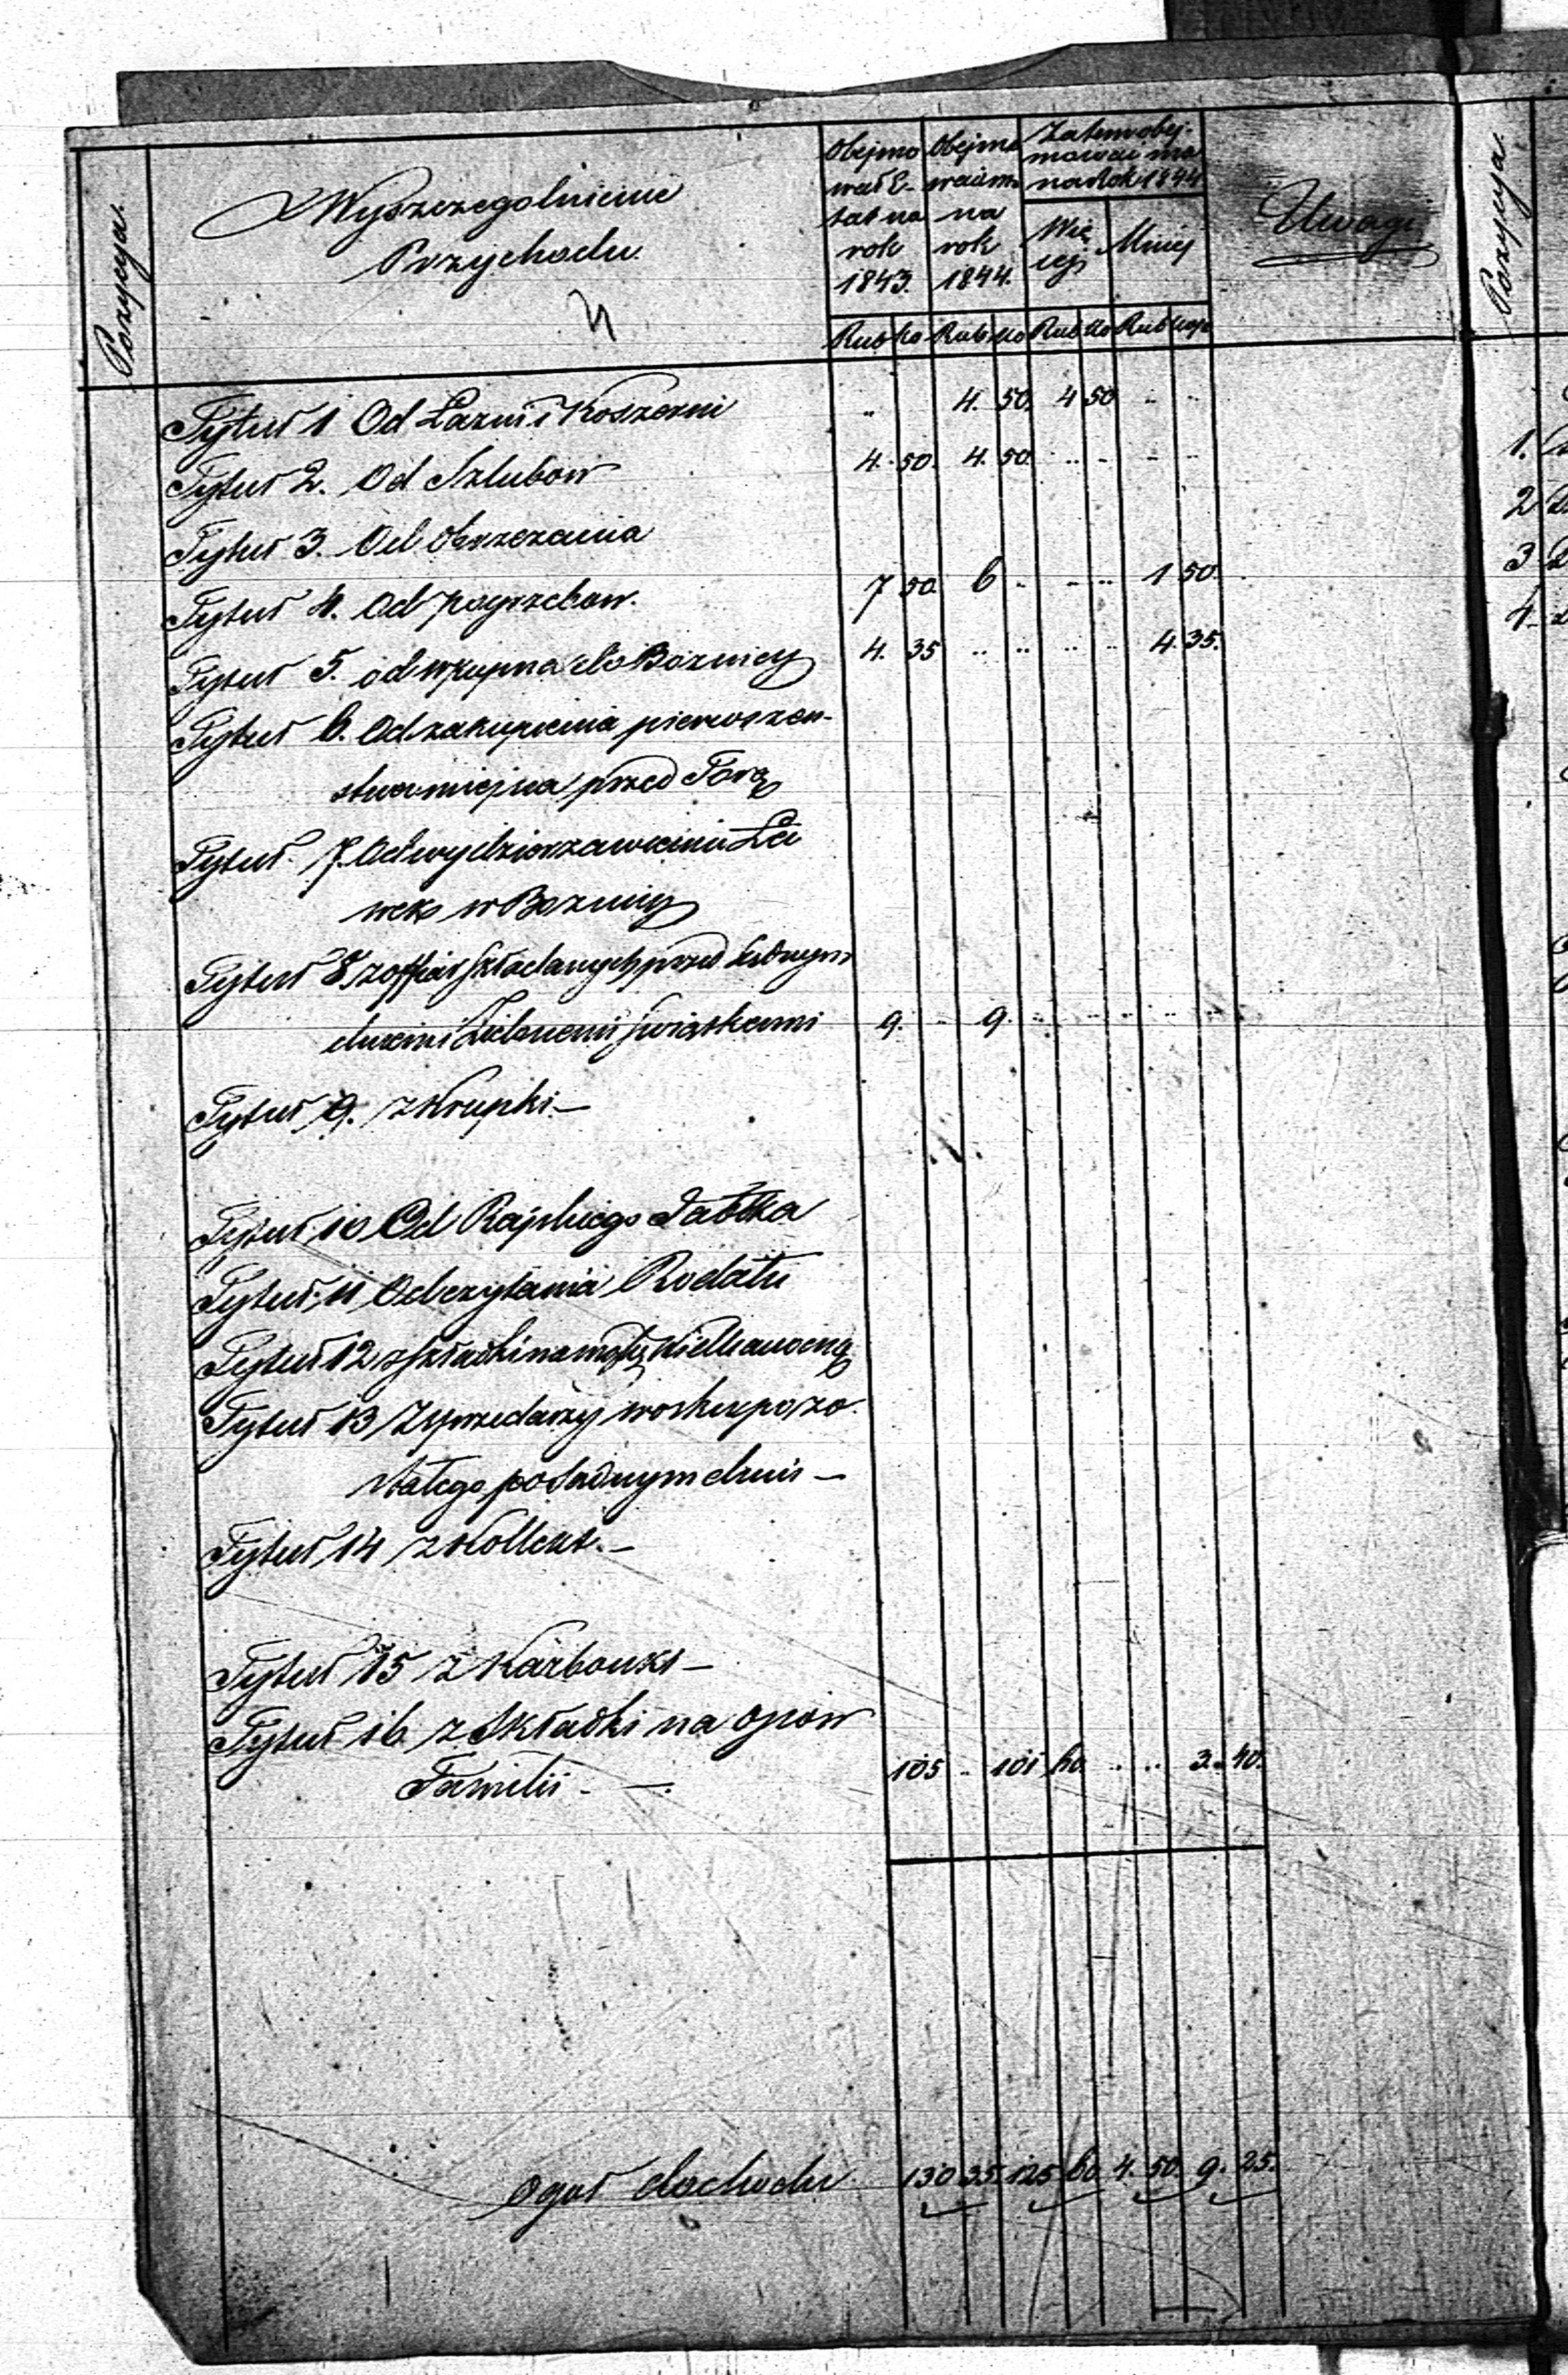 Pozycya.
Wyszczegolnienie
Przychodu.
Obejmo
wał E-
tat na
rok
1843.
Obejmo
wać ma
na
rok
1844.
Zatem obej-
mować ma
na Rok 1844
Wię
cej
Mniej
Uwagi
Rub Ko Rub Ko Rub Ko Rub kop
Tytuł 1 Od Łazni i Koszerni .. 4. 50. 4 50 .. ..
Tytuł 2. Od Szlubow 4. 50. 4. 50. .. - - -
Tytuł 3. Od Obrzezania
Tytuł 4. Od pogrzebow. 7 50. 6 .. - .. 1 50.
Tytuł 5. od wkupna do Boznicy 4. 35 .. .. .. .. 4. 35.
Tytuł 6. Od zakupienia pierwszen-
stwa miejsca przed Torą
Tytuł 7. Od wydzierzawienia Ła
wek w Boznicy
Tytuł 8 z offiar składanych przed Sądnym
dniem i Zielonemi Swiątkami 9. .. 9. .. .. .. .. ..
Tytuł 9. z Krupki. -
Tytuł 10 Od Rajskiego Jabłka
Tytuł 11 Od czytania Rodału
Tytuł 12 z składki na Wielkanocną
Tytuł 13 Z sprzedarzy wosku pozo-
stałego po Sadnym dniu -
Tytuł 14 z Kollekt. -
Tytuł 15 z Karbonki -
Tytuł 16 z Składki na
Familii - -. 105 .. 101 60. .. .. 3. 40.
Ogoł dochodu 130 35. 125 60. 4. 50. 9. 25.
Pozycya.
1.
2
3
4